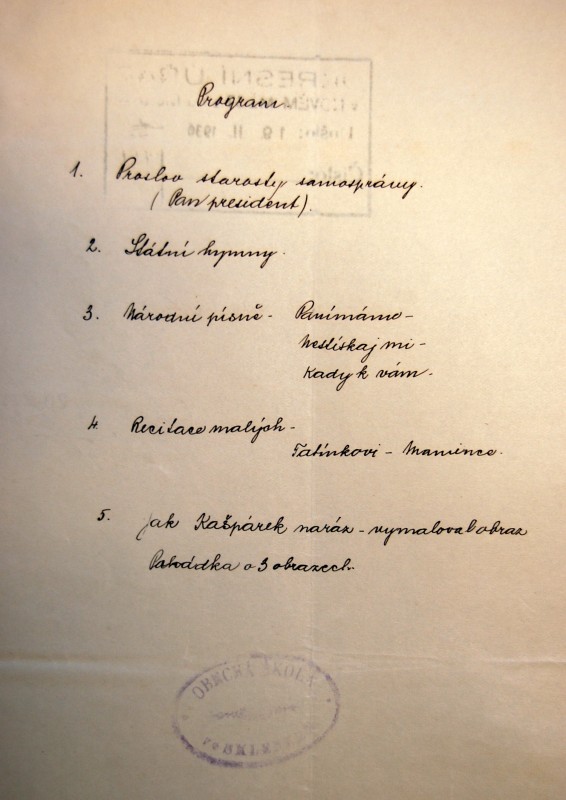 Program
1. Proslov starosty samosprávy.
(Pan president).
2. Státní hymny.
3. Národní písně - Panímámo -
Netiskaj mi -
Kady k vám.
4. Recitace malých -
Tatínkovi - Mamince.
5. Jak Kašpárek naráz - vymaloval obraz
Pohádka o 3 obrazech.
OBECNÁ ŠKOLA